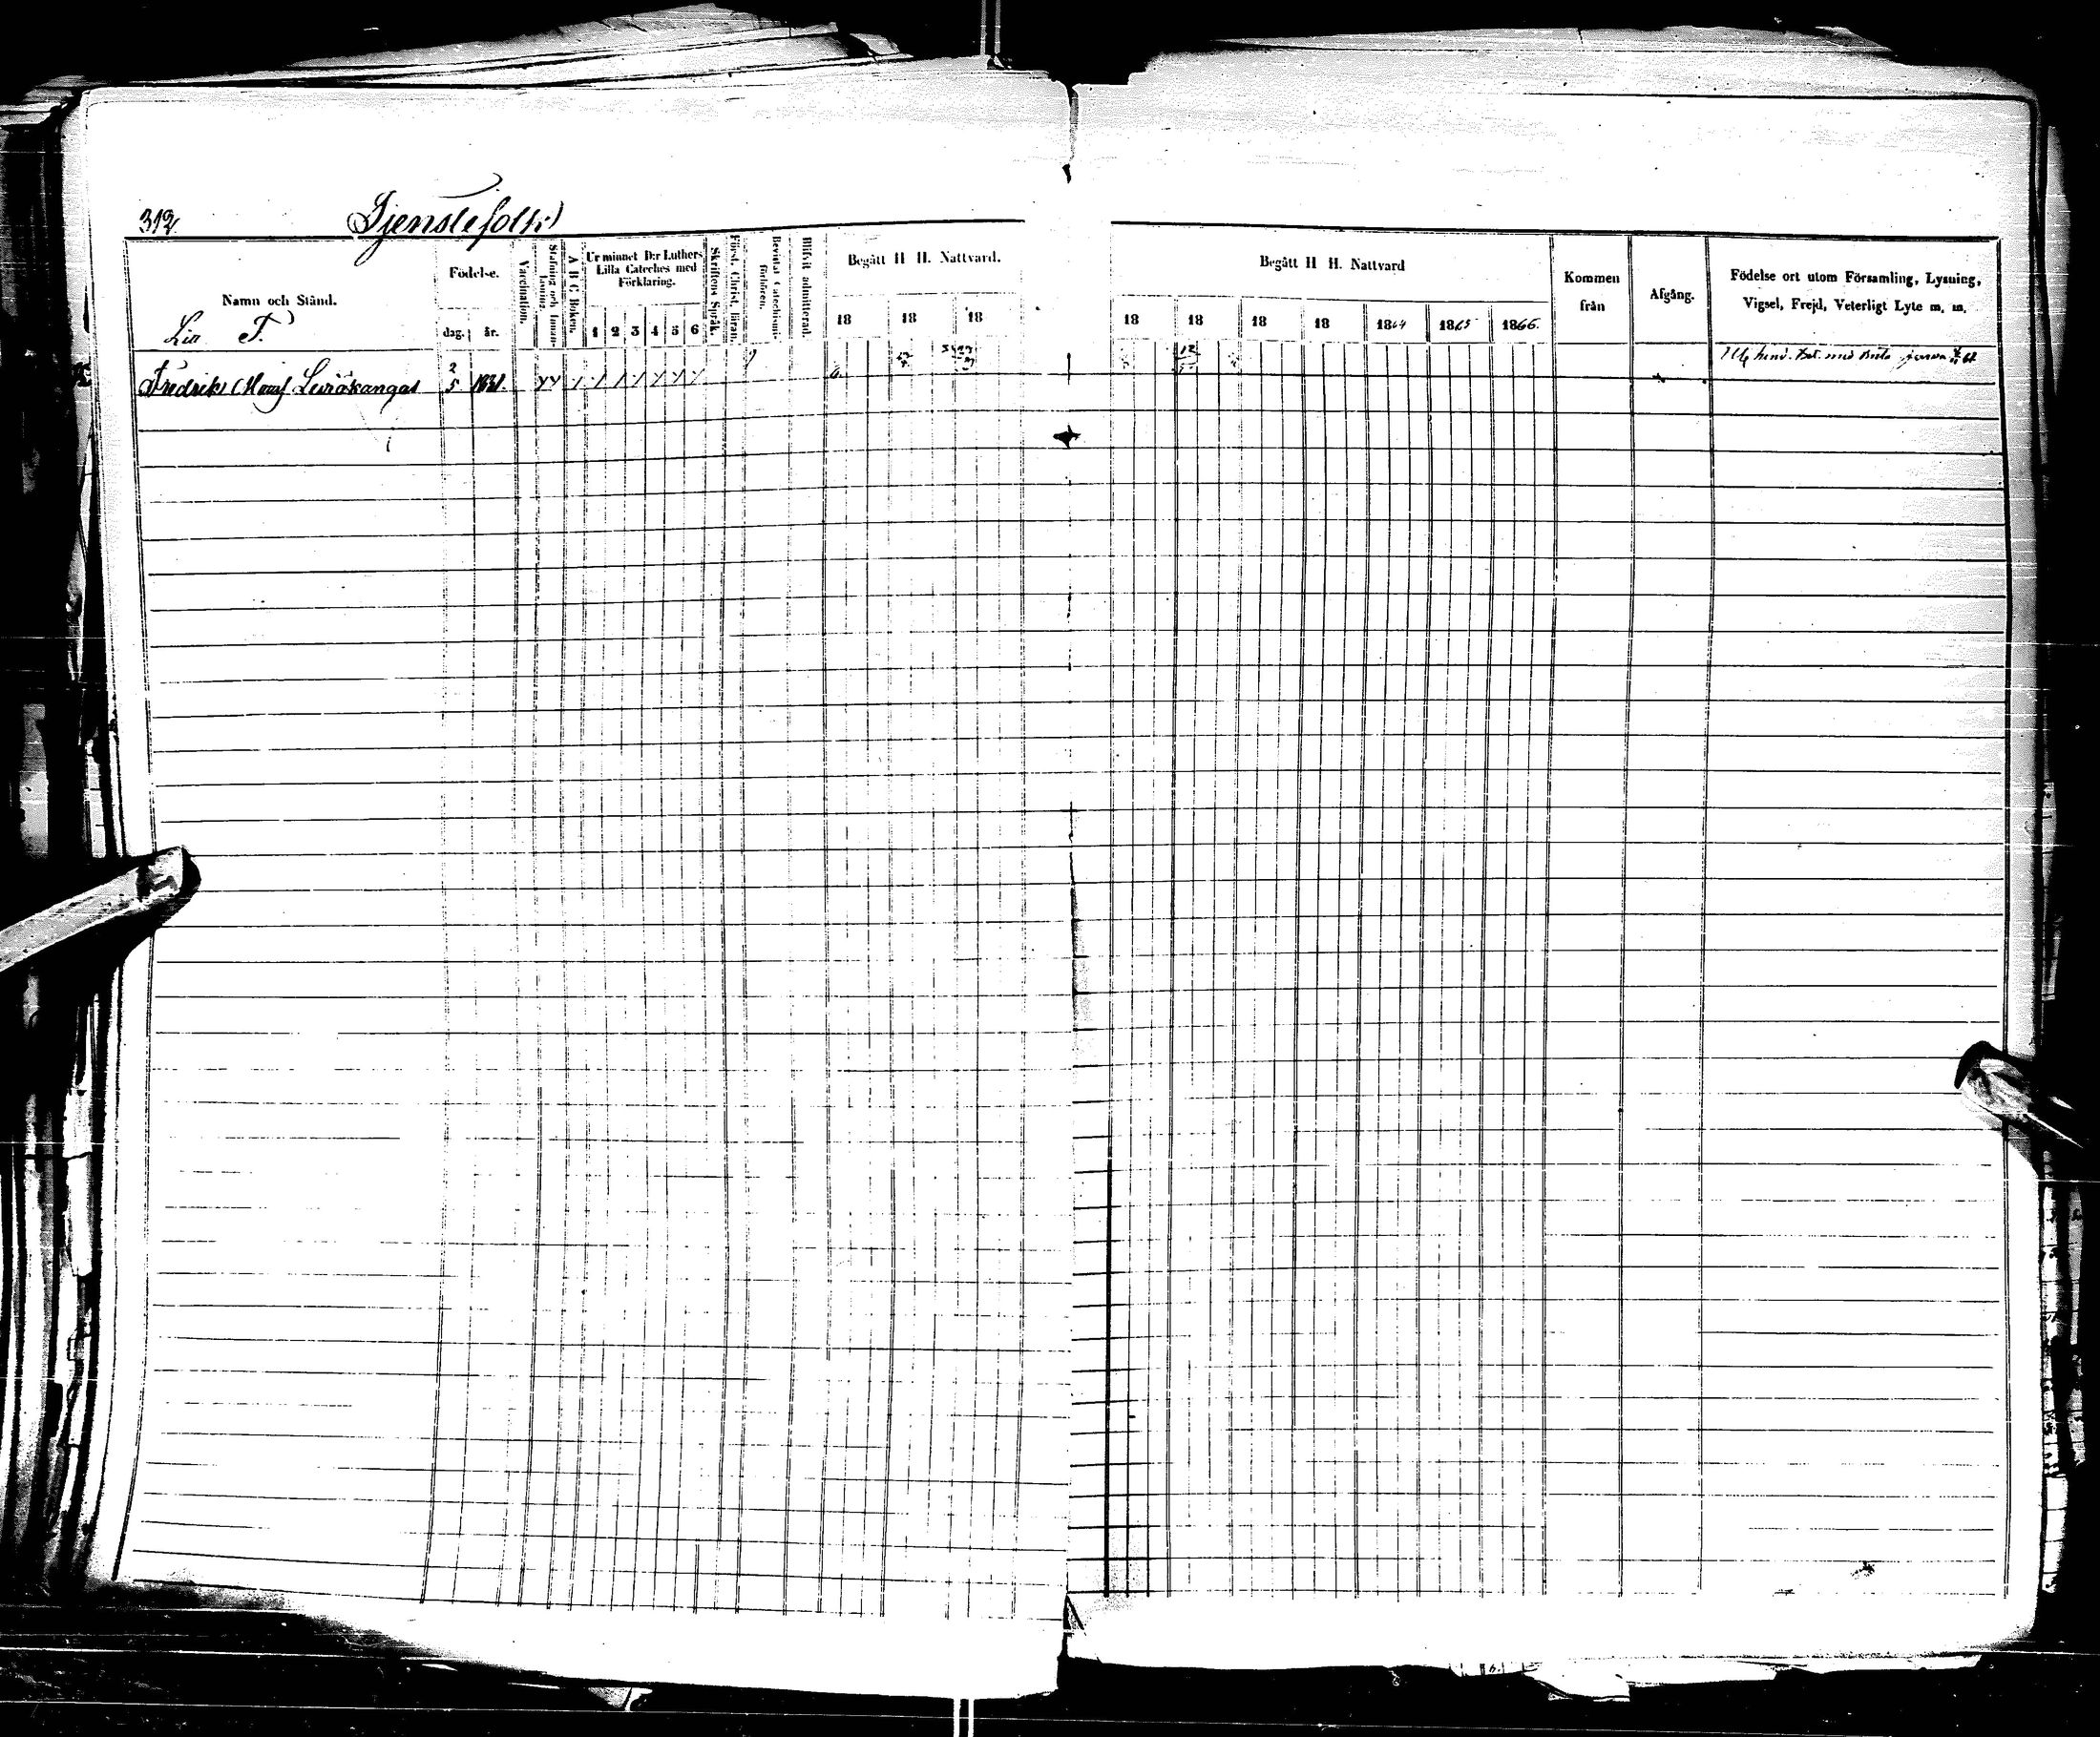 312.
Tjenstefolk
Namn och Stånd.
Födelse.
dag. år.
Vaccination.
Stafning och Innan-läsning.
A B C Boken.
Ur minnet D:r Luthers Lilla Cateches med Förklaring.
1 2 3 4 5 6
Skriftens Språk.
Först. Christ. läran.
Bevistat Catechismi-förhören.
Blifvit admitterad.
Begått H H. Nattvard.
18 18 18
Begått H H. Nattvard
18 18 18 18 1864 1865 1866.
Kommen från
Afgång.
Födelse ort utom Församling, Lysning,
Vigsel, Frejd, Veterligt Lyte m. m.
T.
Fredrik Leviäkangas 2/5 1831.